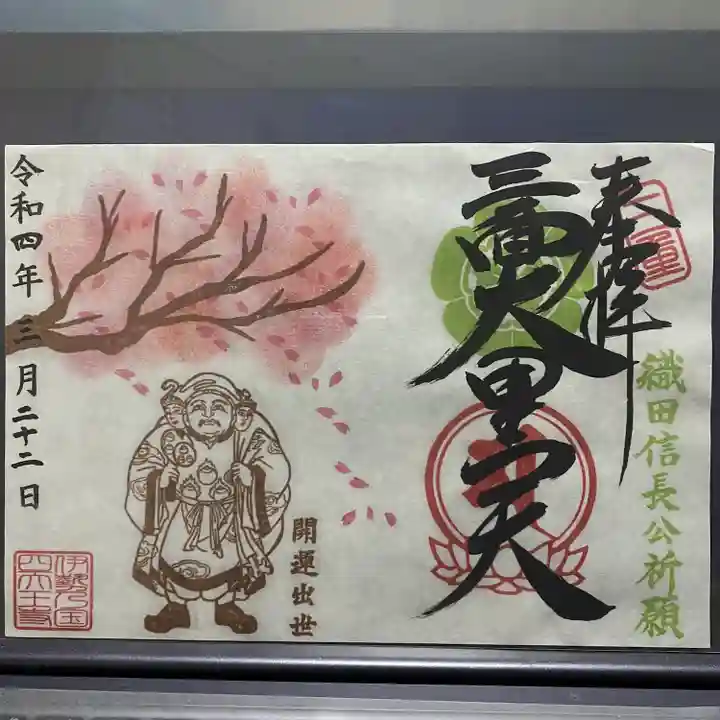 奉拝
三面大黒天
織田信長公祈願
開運出世
令和四年三月二十二日
伊勢乃国
四天王寺